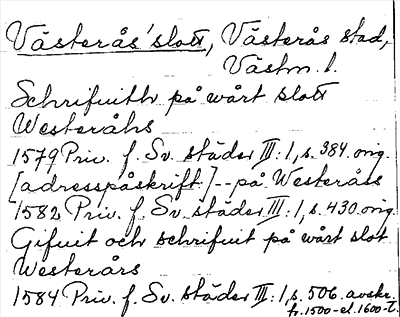 Västerås' slott, Västerås stad,
Västm. l.
Schrifuith på wårt slott
Westeråhs
1579 Priv. f. Sv. städer III:1, s. 384. orig.
[adresspåskrift] -- på Westerårs
1582 Priv. f. Sv. städer III:1, s. 430. orig.
Gifuit och schrifuit på wårt slot
Westerårs
1584 Priv. f. Sv. städer III:1, s. 506. avskr.
fr. 1500-el. 1600-t.